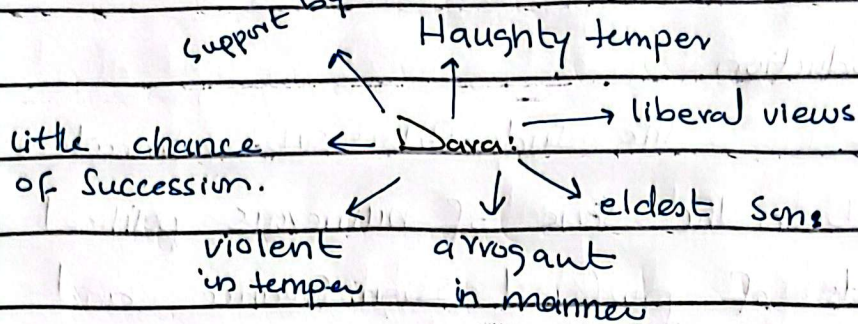 support by
Haughty temper
liberal views
Dara:
little chance
of succession.
eldest son.
violent
in temper
arrogant
in manner